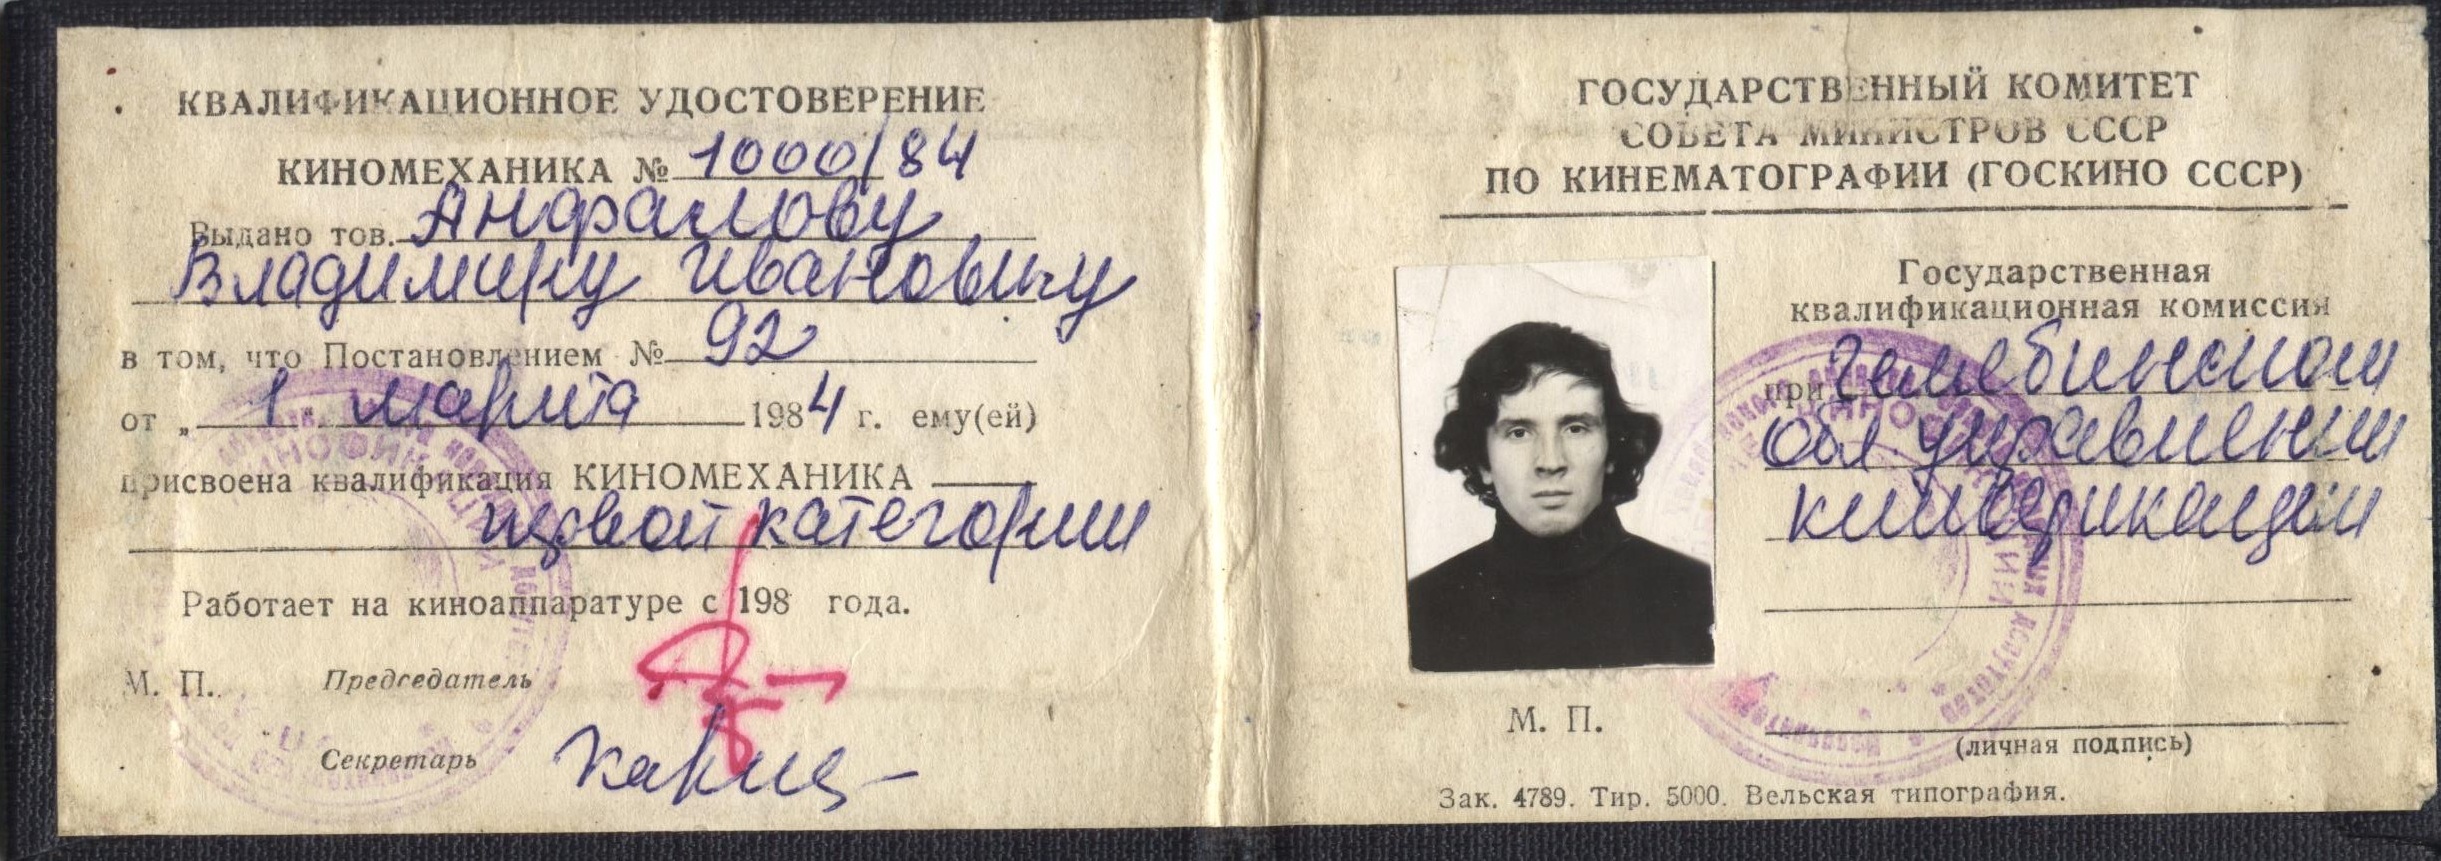 КВАЛИФИКАЦИОННОЕ УДОСТОВЕРЕНИЕ
КИНОМЕХАНИКА № 1000/84
Выдано тов. Анфалову
Владимиру Ивановичу
в том, что Постановлением № 92
от „ 1 " марта 1984 г. ему(ей)
присвоена квалификация КИНОМЕХАНИКА
первой категории
Работает на киноаппаратуре с 198 года.
М. П. Председатель
Секретарь
ГОСУДАРСТВЕННЫЙ КОМИТЕТ
СОВЕТА МИНИСТРОВ СССР
ПО КИНЕМАТОГРАФИИ (ГОСКИНО СССР)
Государственная
квалификационная комиссия
при Челябинском
обл. управлении
кинофикации
М. П.
(личная подпись)
Зак. 4789. Тир. 5000. Вельская типография.